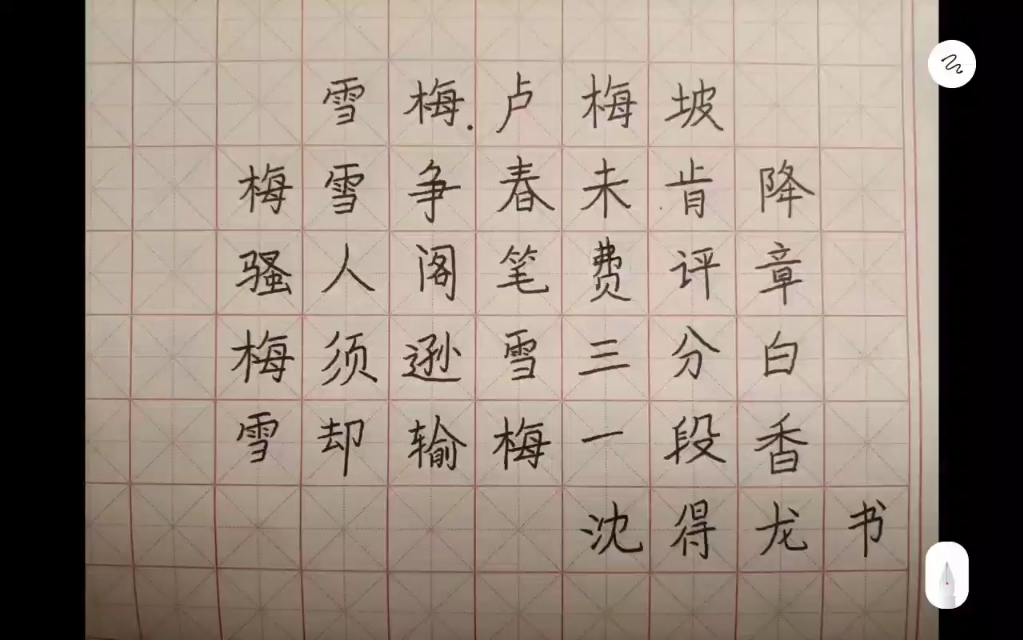 雪梅.卢梅坡
梅雪争春未肯降
骚人阁笔费评章
梅须逊雪三分白
雪却输梅一段香
沈得龙书